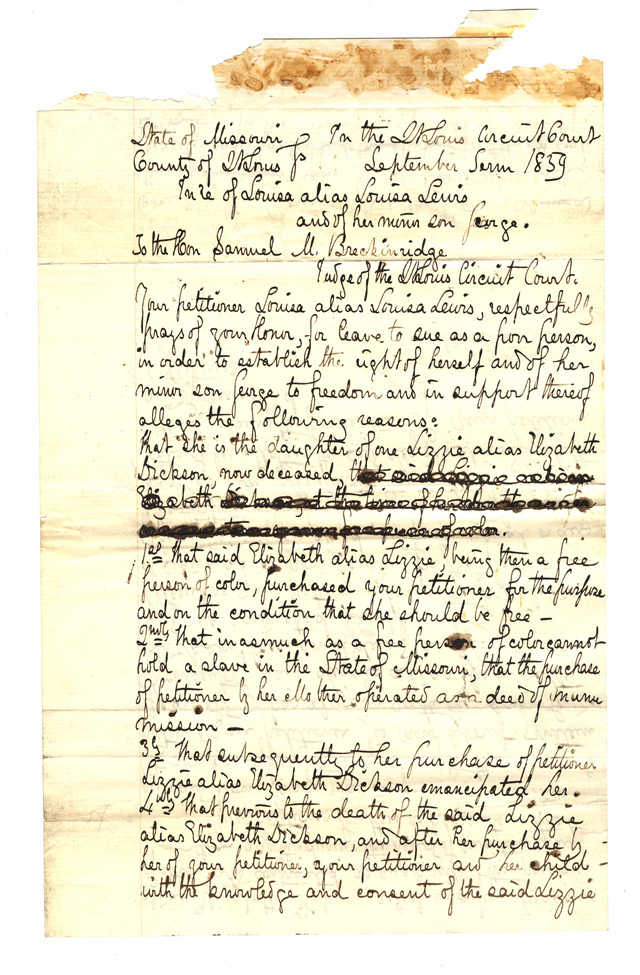 State of Missouri } In the St Louis Circuit Court
County of St Louis } ss September Term 1859
In re of Louisa alias Louisa Lewis
and of her minor son George.
To the Hon Samuel M. Breckinridge
Judge of the St Louis Circuit Court.
Your petitioner Louisa alias Louisa Lewis, respectfully
prays of your Honor, for leave to sue as a poor person,
in order to establish the right of herself and of her
minor son George to freedom and in support thereof
alleges the following reasons:
That she is the daughter of one Lizzie alias Elizabeth
Dickson, now deceased, that said Lizzie alias
Elizabeth
1st That said Elizabeth alias Lizzie, being then a free
person of color, purchased your petitioner for the purpose
and on the condition that she should be free —
2ndly That inasmuch as a free person of color cannot
hold a slave in the State of Missouri, that the purchase
of petitioner by her Mother operated as a deed of manu
mission —
3ly That subsequently to her purchase of petitioner
Lizzie alias Elizabeth Dickson emancipated her.
4thly That previous to the death of the said Lizzie
alias Elizabeth Dickson, and after her purchase by
her of your petitioner, your petitioner and her child —
with the knowledge and consent of the said Lizzie